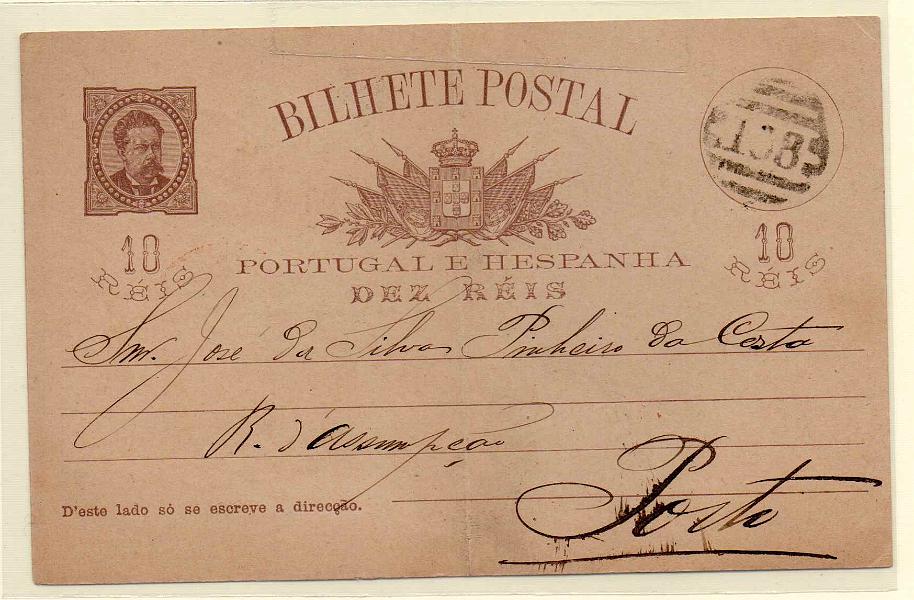 BILHETE POSTAL
138
10
RÉIS
10
RÉIS
PORTUGAL E HESPANHA
DEZ RÉIS
Snr. José da Silva Pinheiro da Costa
R. d'Assumpção
Porto
D'este lado só se escreve a direcção.